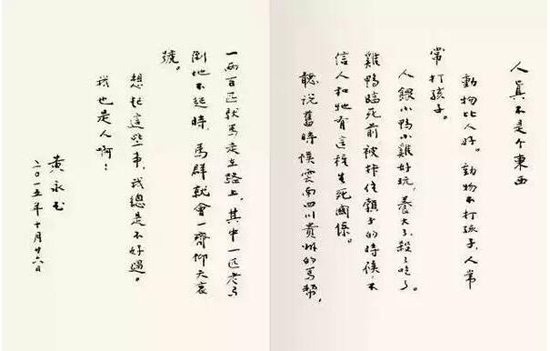 人真不是个東西
動物比人好。動物不打孩子，人常
常打孩子。
人餵小鴨小雞好玩，養大了，殺了吃了。
雞鴨臨死前被掐住頸子的時候，不
信人和牠有這種生死關係。
聽说舊時候雲南四川貴州的馬幫，
一兩百匹馱馬走在路上，其中一匹老了
倒地不起時，馬群就會一齊仰天哀
號。
想起這些事，我總是不好過。
我也是人啊！
黄永玉
二〇一五年十月廿六日